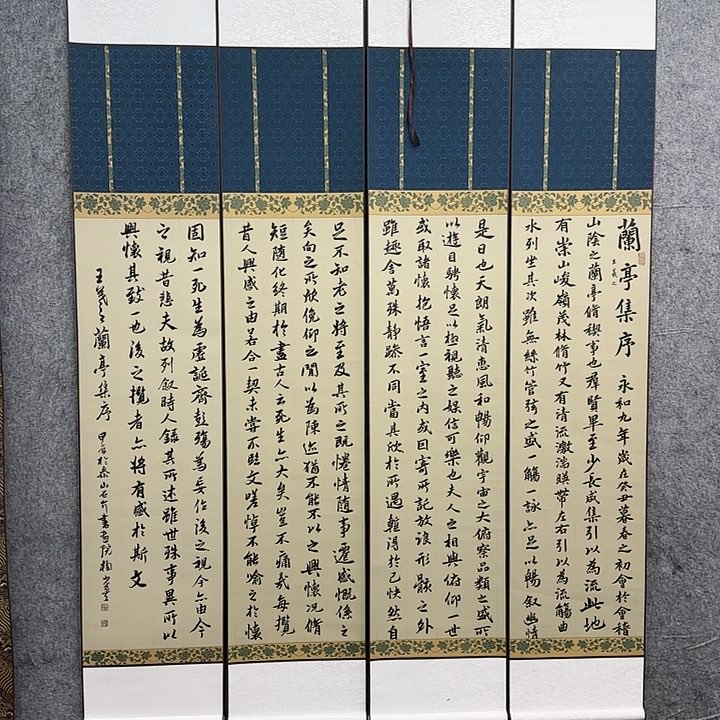 蘭亭集序 永和九年歲在癸丑暮春之初會於會稽
王羲之
山陰之蘭亭脩稧事也羣賢畢至少長咸集引以為流此地
有崇山峻嶺茂林脩竹又有清流激湍暎帶左右引以為流觴曲
水列坐其次雖無絲竹管弦之盛一觴一詠亦足以暢叙幽情
是日也天朗氣清惠風和暢仰觀宇宙之大俯察品類之盛所
以遊目騁懷足以極視聽之娱信可樂也夫人之相與俯仰一世
或取諸懷抱悟言一室之内或因寄所託放浪形骸之外
雖趣舍萬殊靜躁不同當其欣於所遇輙得於己怏然自
足不知老之將至及其所之既惓情隨事遷感慨係之
矣向之所欣俛仰之間以為陳迹猶不能不以之興懷況脩
短隨化終期於盡古人云死生亦大矣豈不痛哉每攬
昔人興感之由若合一契未嘗不臨文嗟悼不能喻之於懷
固知一死生為虛誕齊彭殤為妄作後之視今亦由今
之視昔悲夫故列叙時人錄其所述雖世殊事異所以
興懷其致一也後之攬者亦將有感於斯文
王羲之蘭亭集序 甲辰於泰山石介書畫院楊